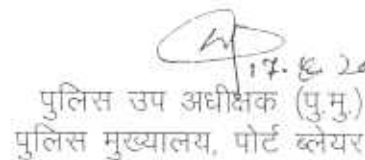 17.
पुलिस उप अधीक्षक (पु.मु.)
पुलिस मुख्यालय, पोर्ट ब्लेयर